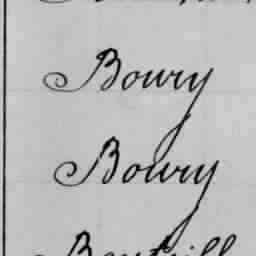 Bowry
Bowry